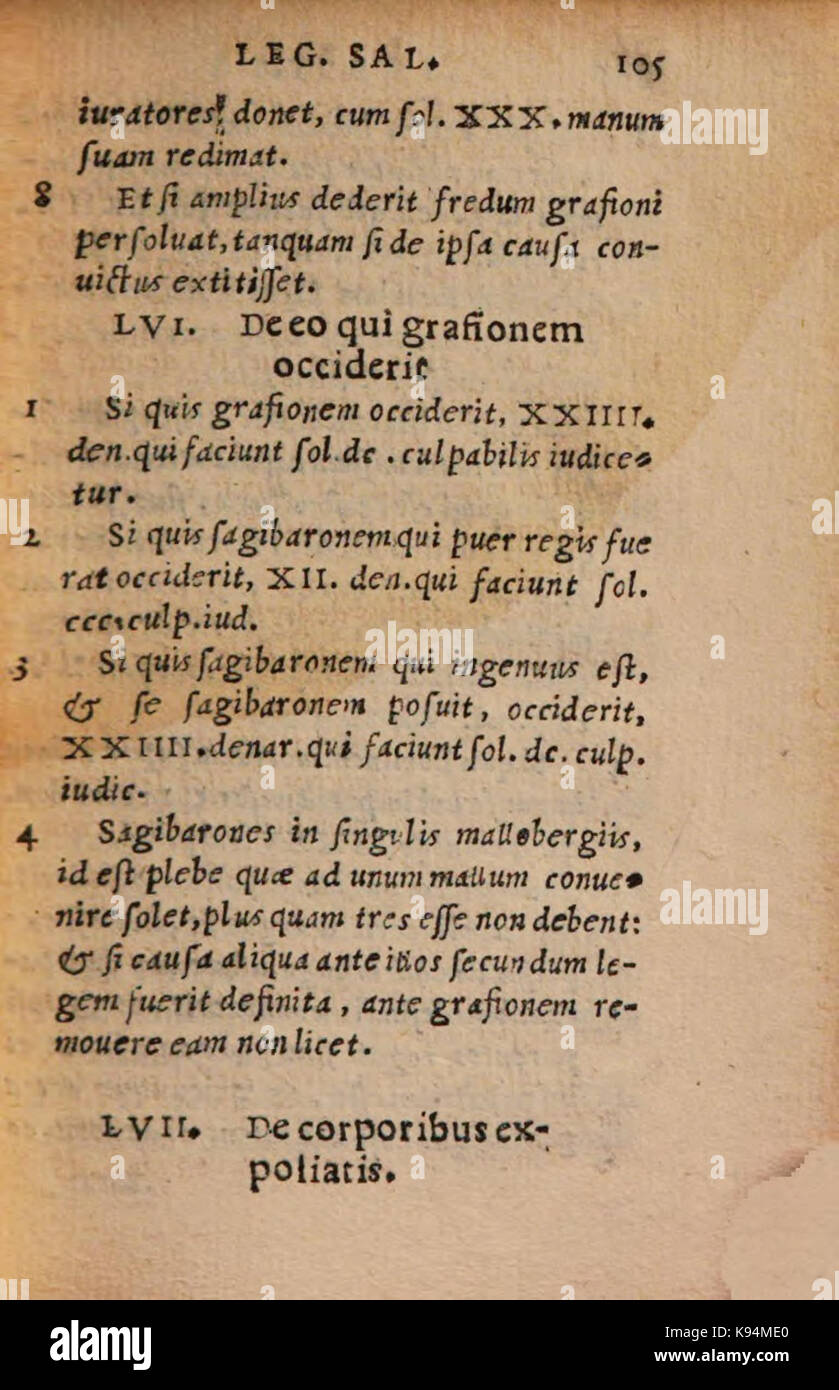 LEG. SAL. 105
iuratores donet, cum ſol. XXX. manum
ſuam redimat.
8 Et ſi amplius dederit fredum grafioni
perſoluat, tanquam ſi de ipſa cauſa con-
uictus extitiſſet.
LVI. De eo qui grafionem
occiderit
1 Si quis grafionem occiderit, XXIIII.
den. qui faciunt ſol. dc. culpabilis iudice-
tur.
2 Si quis ſagibaronem qui puer regis fue
rat occiderit, XII. den. qui faciunt ſol.
ccc. culp. iud.
3 Si quis ſagibaronem qui ingenuus eſt,
& ſe ſagibaronem poſuit, occiderit,
XXIIII. denar. qui faciunt ſol. dc. culp.
iudic.
4 Sagibarones in ſingulis mallobergiis,
id eſt plebe quæ ad unum mallum conue-
nire ſolet, plus quam tres eſſe non debent:
& ſi cauſa aliqua ante illos ſecundum le-
gem fuerit definita, ante grafionem re-
mouere eam non licet.
LVII. De corporibus ex-
poliatis.
alamy
alamy
alamy
alamy
Image ID: K94ME0
www.alamy.com